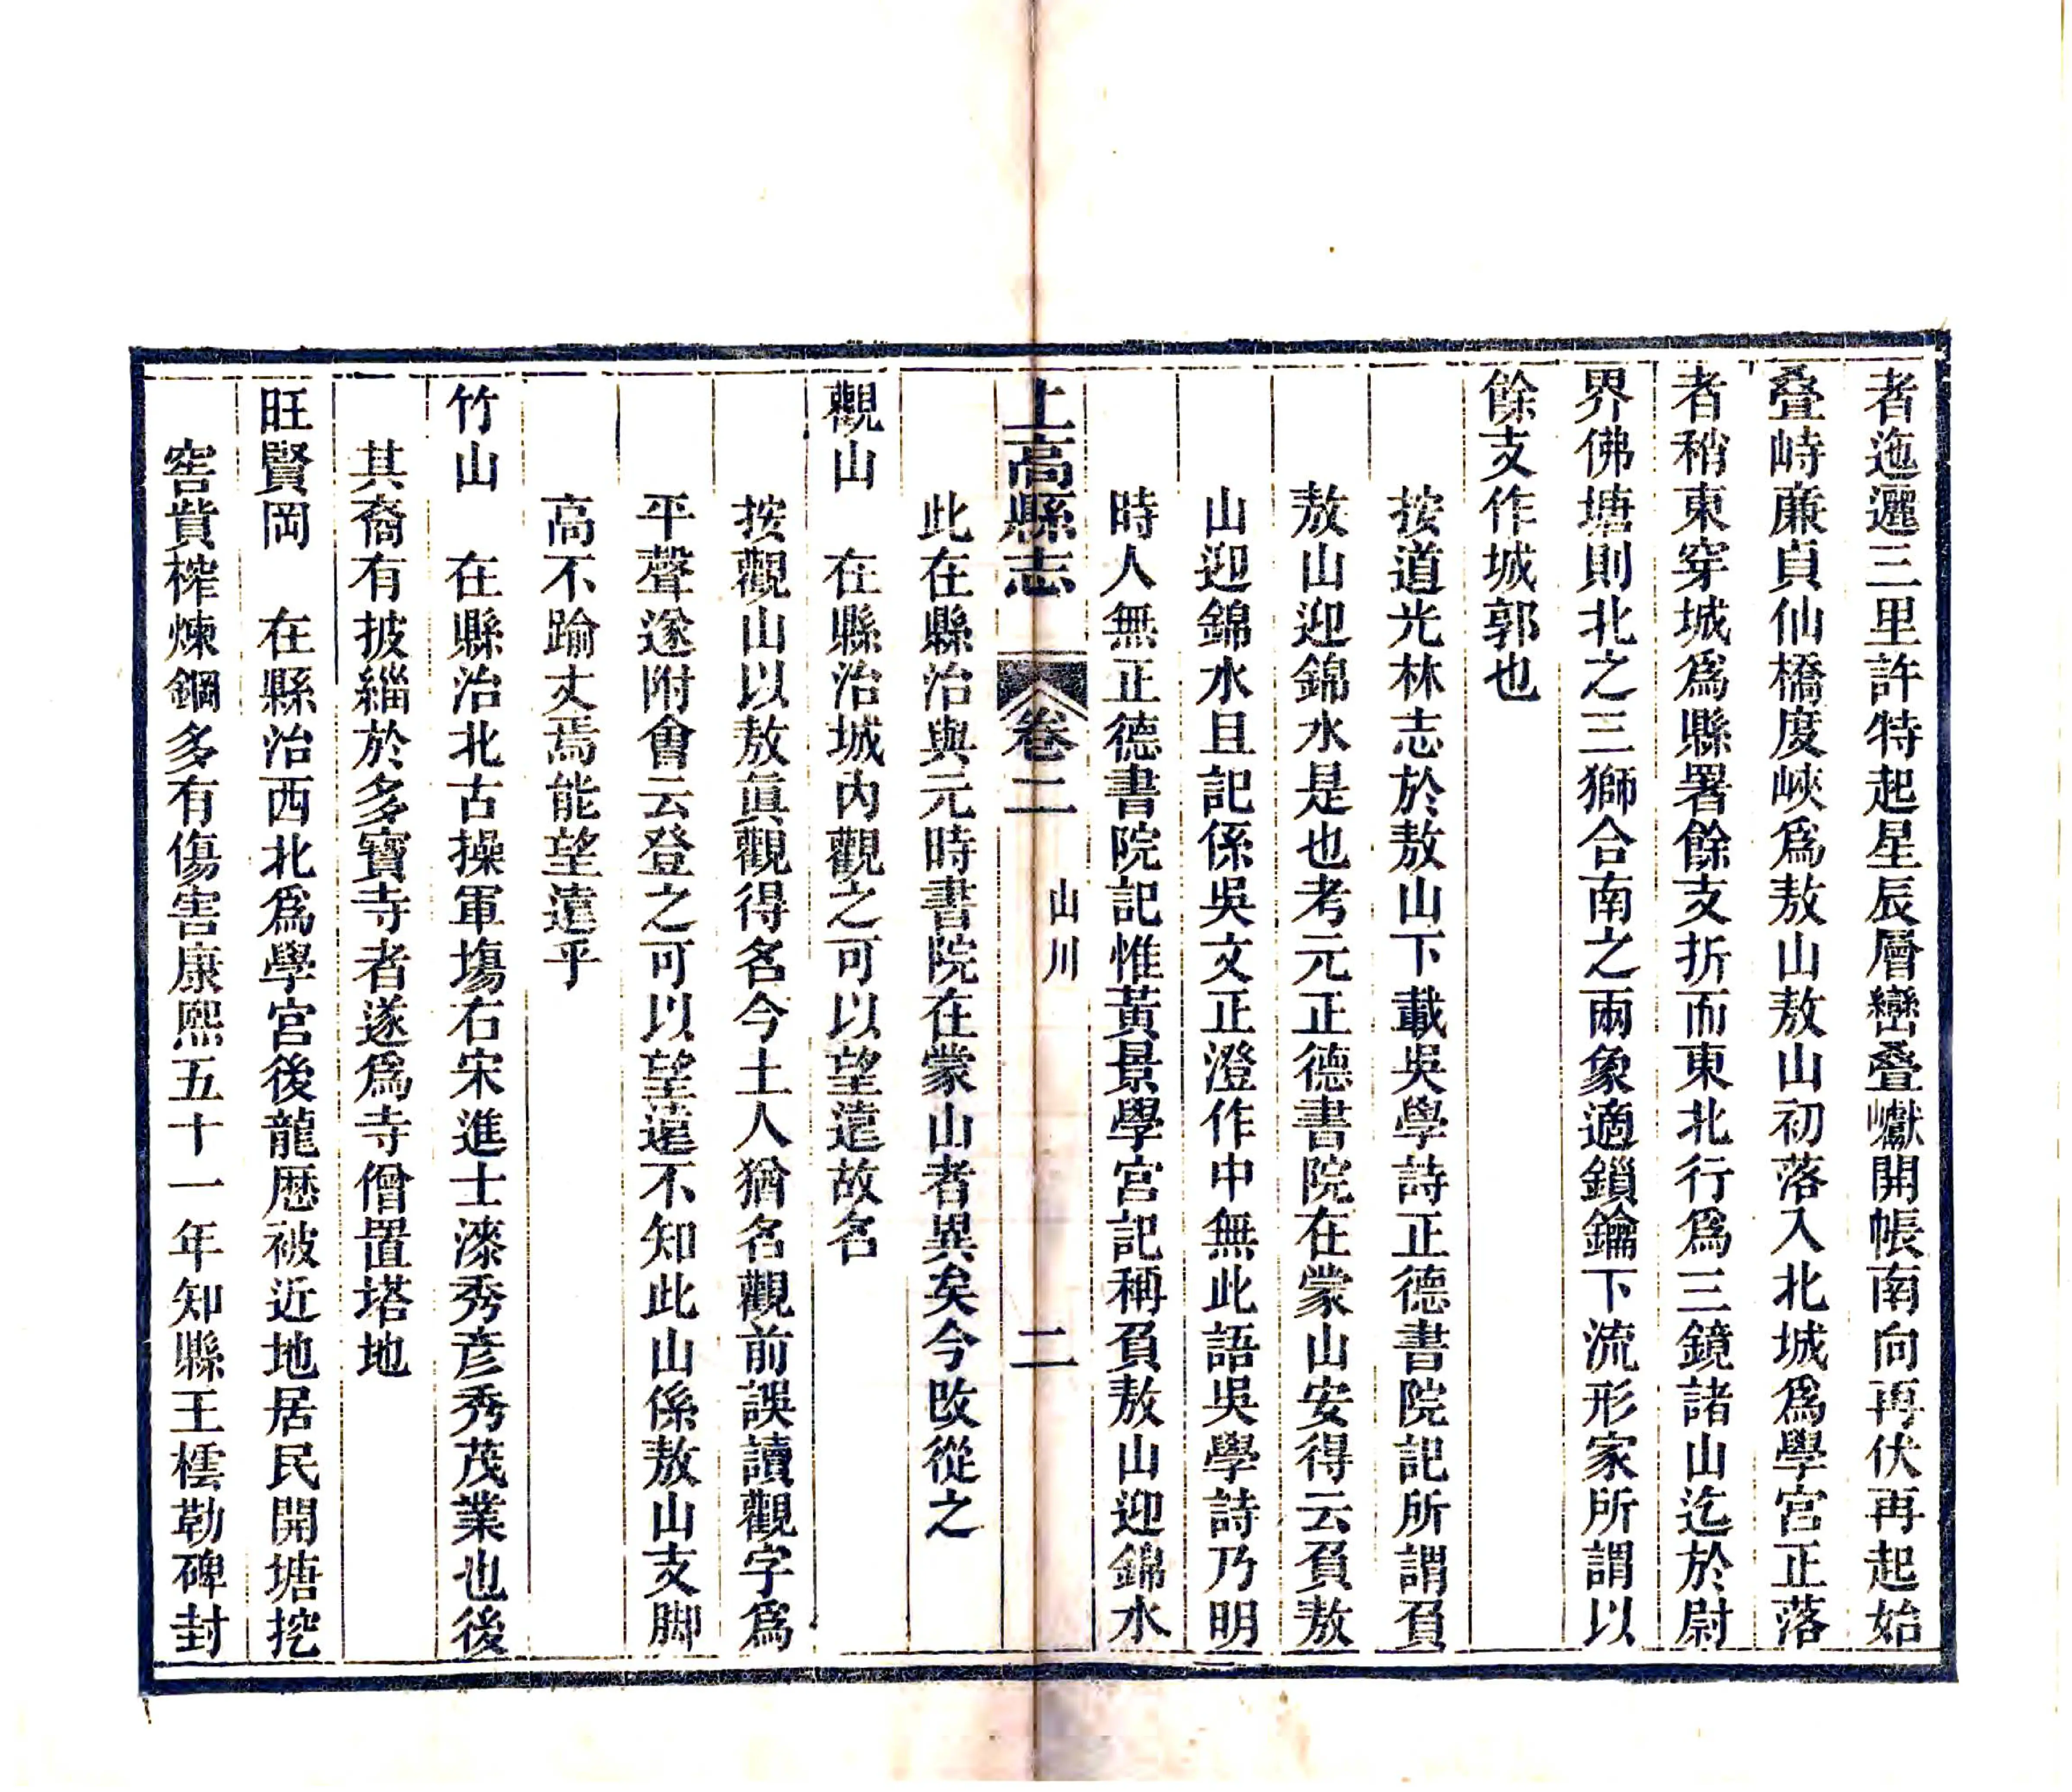 者迤邐三里許特起星辰層巒叠巘開帳南向再伏再起始
叠峙廉貞仙橋度峽爲敖山敖山初落入北城爲學宮正落
者稍東穿城爲縣署餘支折而東北行爲三鏡諸山迄於尉
界佛塘則北之三獅合南之兩象適鎖鑰下流形家所謂以
餘支作城郭也
按道光林志於敖山下載吳學詩正德書院記所謂負
敖山迎錦水是也考元正德書院在蒙山安得云負敖
山迎錦水且記係吳文正澄作中無此語吳學詩乃明
時人無正德書院記惟黃景學宮記稱負敖山迎錦水
上高縣志 卷二 山川 二
此在縣治與元時書院在蒙山者異矣今改從之
觀山 在縣治城內觀之可以望遠故名
按觀山以敖眞觀得名今土人猶名觀前誤讀觀字爲
平聲遂附會云登之可以望遠不知此山係敖山支脚
高不踰丈焉能望遠乎
竹山 在縣治北古操軍塲右宋進士漆秀彦秀茂業也後
其裔有披緇於多寶寺者遂爲寺僧置塔地
旺賢岡 在縣治西北爲學宮後龍歷被近地居民開塘挖
窖貲榨煉鋼多有傷害康熙五十一年知縣王橒勒碑封